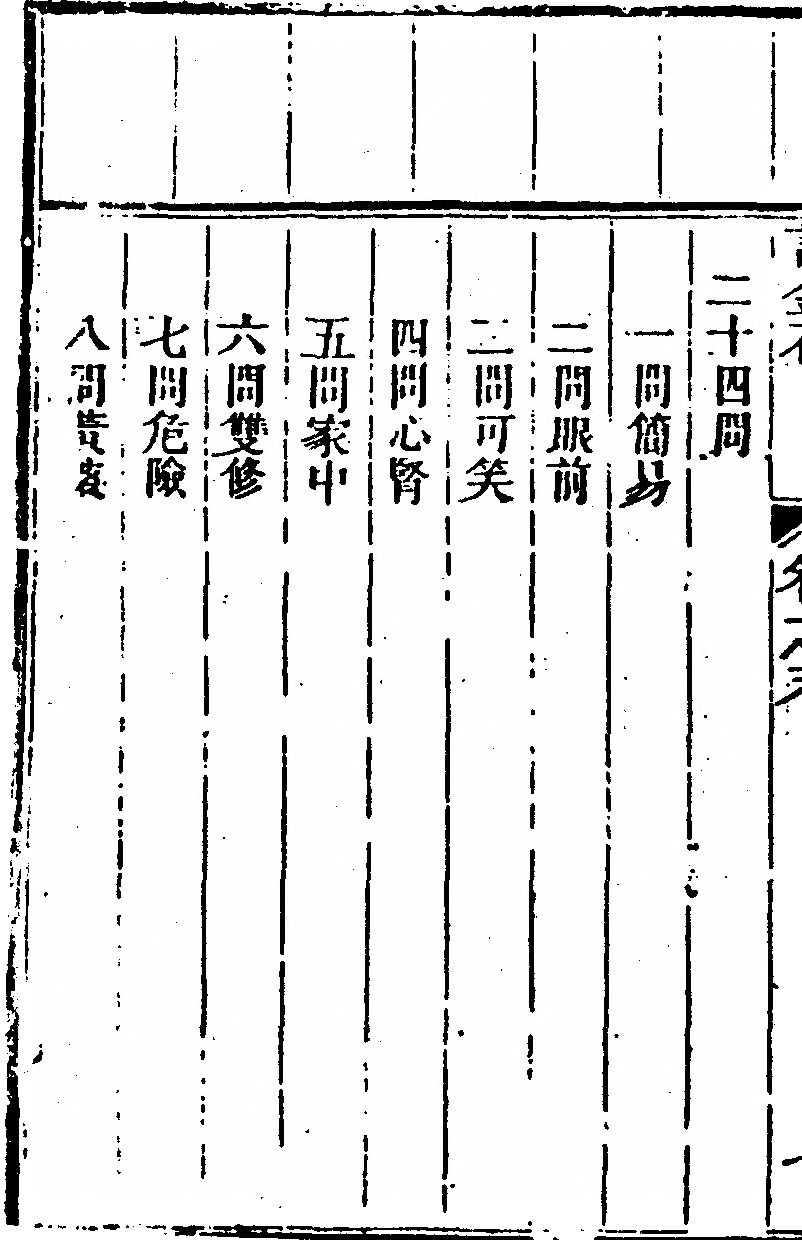 二十四問
一問簡易
二問眼前
三問可笑
四問心腎
五問家中
六問雙修
七問危險
八問